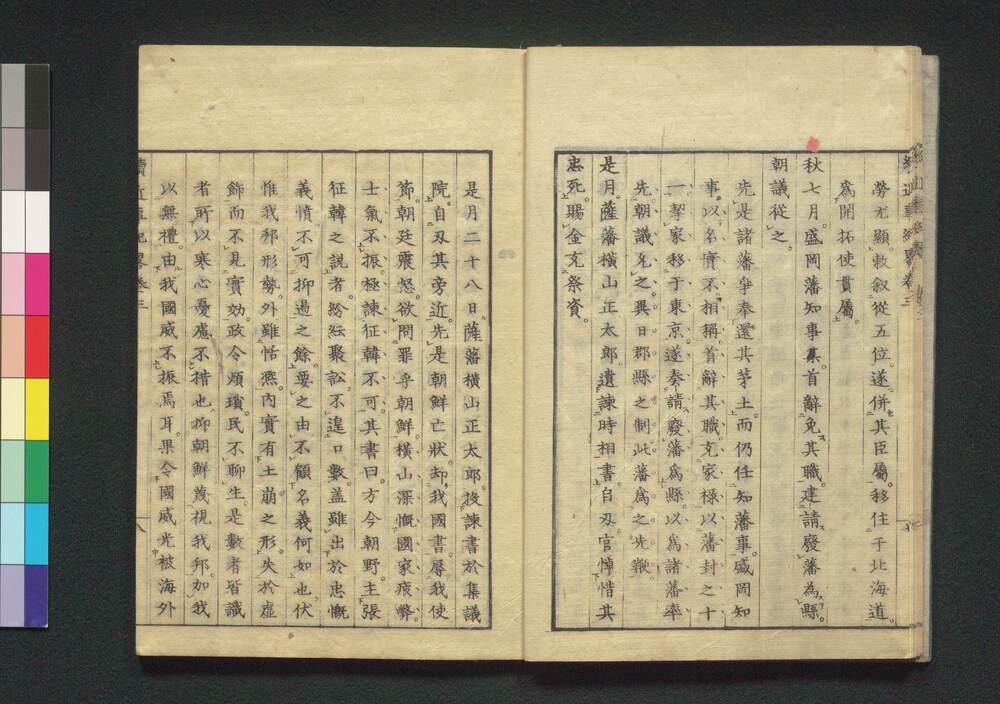 勞尤顯敕叙從五位遂併其臣屬移住于北海道
為開拓使貫屬
秋七月盛岡藩知事集首辭免其職建請廢藩為縣
朝議從之
先是諸藩爭奉還其茅土而仍任知藩事盛岡知
事以名實不相稱首辭其職充家祿以藩封之十
一挈家移于東京遂奏請廢藩為縣以為諸藩率
先朝議允之異日郡縣之制此藩為之先鞭
是月薩藩橫山正太郎遺諫時相書自刃官悼惜其
忠死賜金充祭資
是月二十八日薩藩橫山正太郎投諫書於集議
院自刃其旁近先是朝鮮亡狀却我國書辱我使
節朝廷震怒欲問罪乎朝鮮橫山深慨國家疲弊
士氣不振極諫征韓不可其書曰方今朝野主張
征韓之說者紛紜聚訟不遑口數蓋雖出於忠慨
義憤不可抑遏之餘要之由不顧名義何如也伏
惟我邦形勢外雖恬熙內實有土崩之形失於虛
飾而不見實効政令煩瑣民不聊生是數者皆識
者所以寒心憂慮不措也抑朝鮮蔑視我邦加我
以無禮由我國威不振焉耳果令國威光被海外
續近事紀畧卷三
八